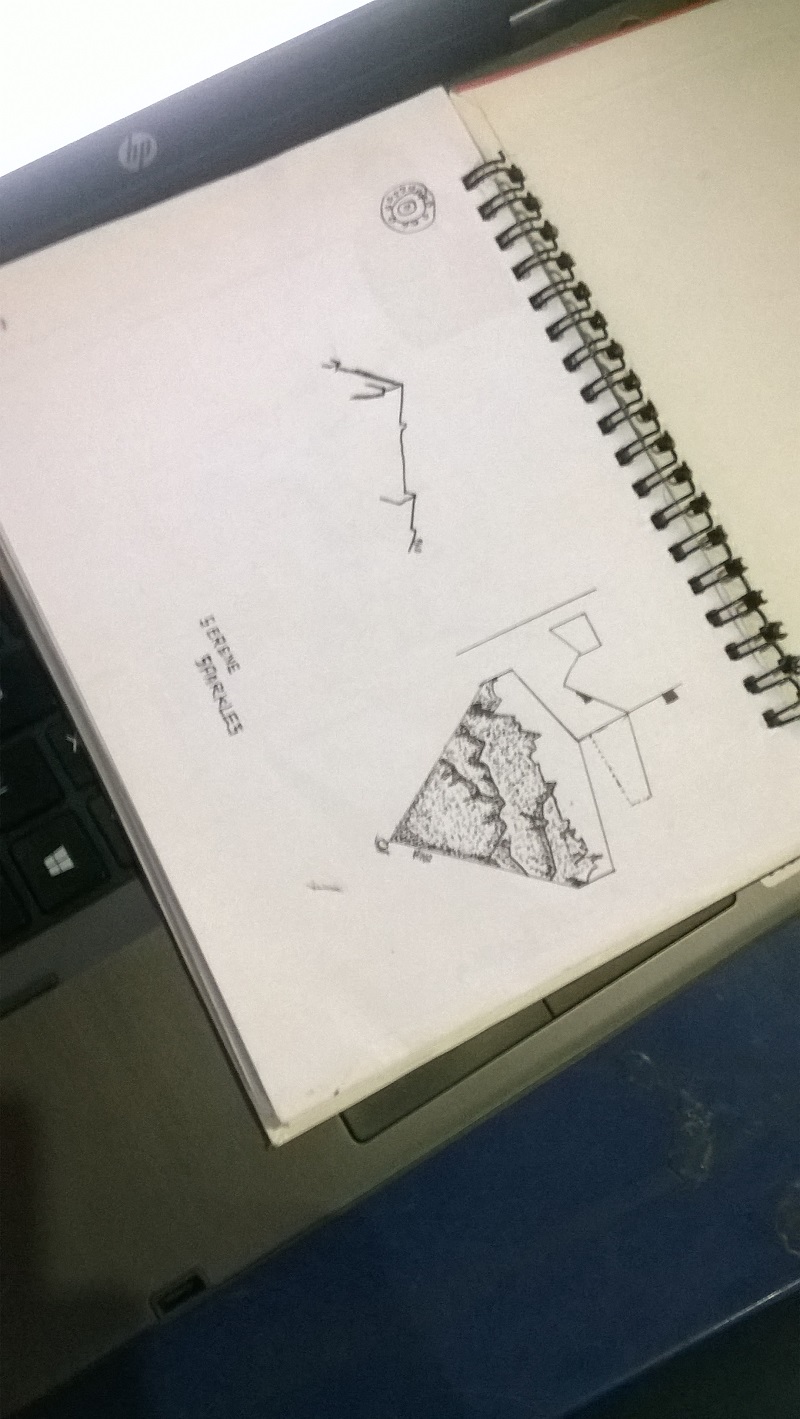 hp
SERENE
SPARKLES